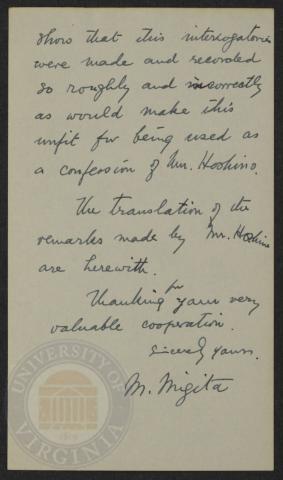 show that this interrogatories
were made and recorded
so roughly and incorrectly
as would make this
unfit for being used as
a confession of Mr. Hoshino.
The translation of the
remarks made by Mr. Hoshino
are herewith.
Thanking for your very
valuable cooperation.
Sincerely yours.
M. Migita
UNIVERSITY OF VIRGINIA
1819